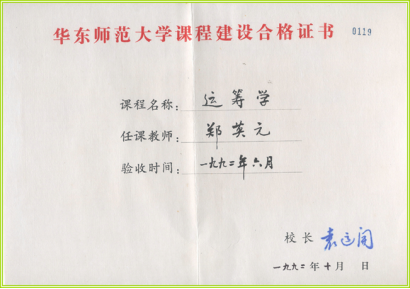 华东师范大学课程建设合格证书
0119
课程名称：运筹学
任课教师：郑英元
验收时间：一九九二年六月
校长 袁运开
一九九二年十月 日